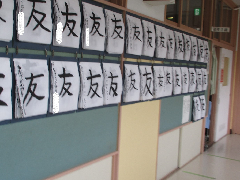 友 友 友 友 友 友 友 友 友 友 友 友
友 友 友 友 友 友 友 友 友 友 友 友